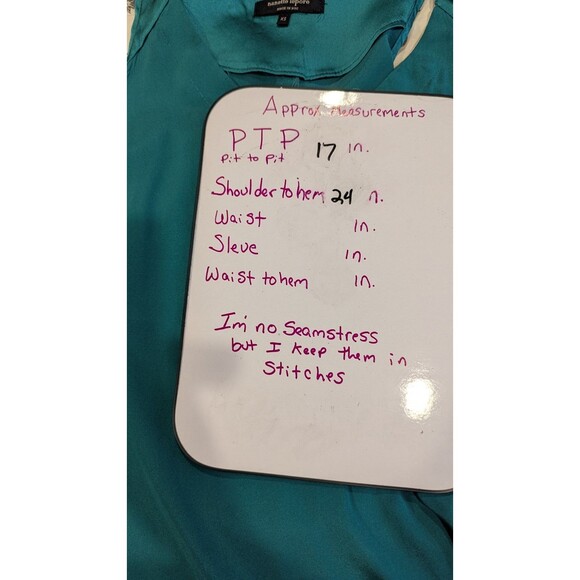 nanette lepore
XS
Approx Measurements
PTP 17 in.
Pit to Pit
Shoulder to hem 24 n.
Waist in.
Sleve in.
Waist to hem in.
I'm no Seamstress
but I keep them in
Stitches